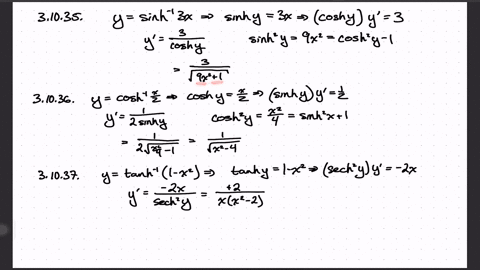 3.10.35. y = sinh⁻¹ 3x ⇒ sinhy = 3x ⇒ (coshy) y' = 3
y' = 3/coshy sinh²y = 9x² = cosh²y - 1
= 3/√(9x²+1)
3.10.36. y = cosh⁻¹ x/2 ⇒ coshy = x/2 ⇒ (sinhy) y' = 1/2
y' = 1/(2sinhy) cosh²y = x²/4 = sinh²x+1
= 1/(2√(x²/4 - 1)) = 1/√(x²-4)
3.10.37. y = tanh⁻¹(1-x²) ⇒ tanhy = 1-x² ⇒ (sech²y) y' = -2x
y' = -2x/sech²y = +2/(x(x²-2))